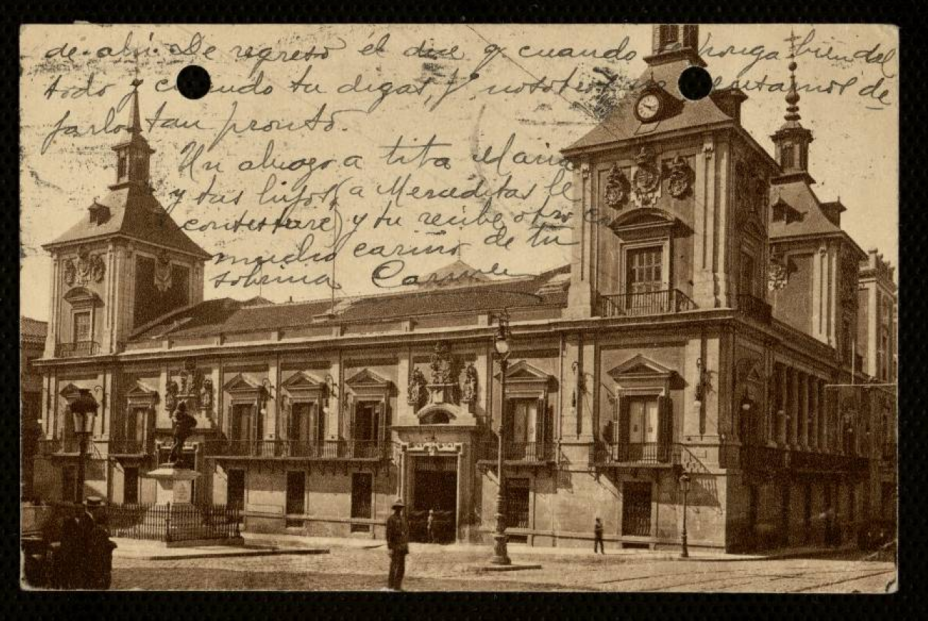 de ahí. De regreso él dice q cuando   honga bien del
todo y cuando tu digas, y nosotros   sentamos de
farlos tan pronto.
Un abrazo a tita Maria
y tus hijos (a Merceditas le
contestaré) y tu recibe otro con
mucho cariño de tu
sobrina Carmele